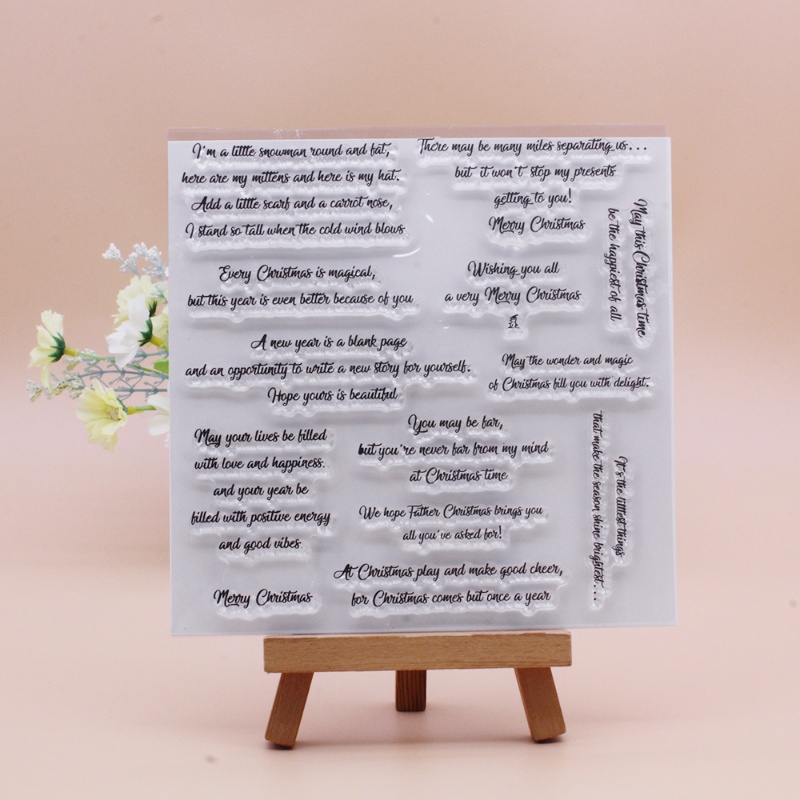 I'm a little snowman round and fat,
here are my mittens and here is my hat.
Add a little scarf and a carrot nose,
I stand so tall when the cold wind blows
There may be many miles separating us...
but it won't stop my presents
getting to you!
Merry Christmas
May this Christmas time
be the happiest of all
Every Christmas is magical,
but this year is even better because of you
Wishing you all
a very Merry Christmas
A new year is a blank page
and an opportunity to write a new story for yourself.
Hope yours is beautiful
May the wonder and magic
of Christmas fill you with delight.
May your lives be filled
with love and happiness.
and your year be
filled with positive energy
and good vibes
You may be far,
but you're never far from my mind
at Christmas time
It's the littlest things
that make the season shine brightest...
We hope Father Christmas brings you
all you've asked for!
Merry Christmas
At Christmas play and make good cheer,
for Christmas comes but once a year